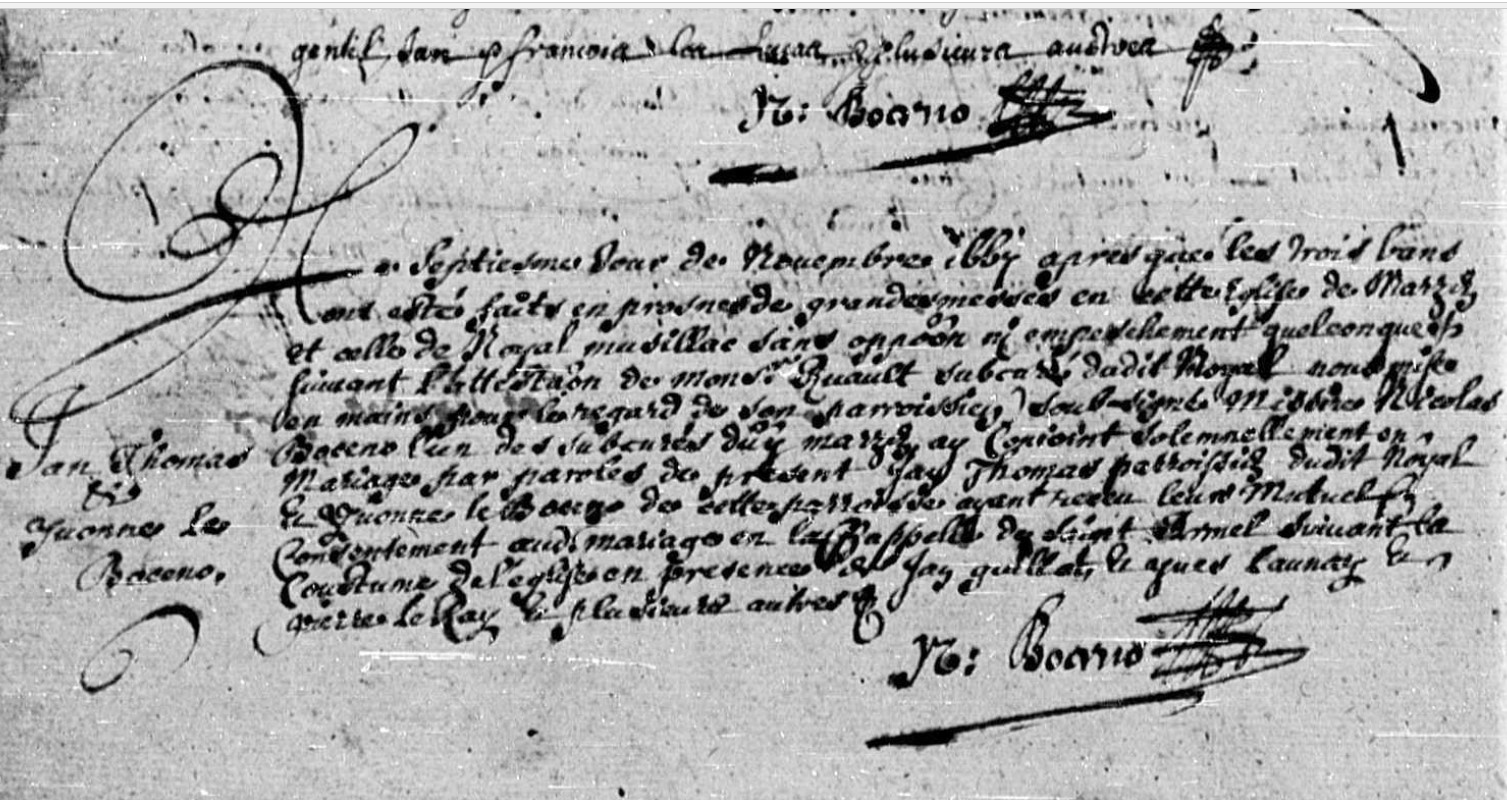 gentil Jan & francois les & plusieurs austres
N: Boceno
Le Septiesme Jour de Novembre 1667 apres que les trois bans
ont esté faits en prosnes de grandes messes en cette Eglise de Marzan
et celle de Noyal musillac sans oppoõn ni empeschement quelconque &
suivant l'attestaõn de monsr Ruault subcuré dudit Noyal nous mise
en mains pour le regard de son parroissien Je soubsigné Missire Nicolas
Jan Thomas
&
Yvonne le
Boceno.
Boceno l'un des subcurés dudt marzan ay Conjoint solemnellement en
Mariage par paroles de present Jan Thomas parroissien dudit Noyal
& Yvonne le Boceno de cette parroisse ayant receu leur Mutuel
Consentement audt mariage en la Chappelle de Saint Armel suivant la
Coustume de l'eglise en presence de Jan guillot, & yves launay &
pierre le Ray & plusieurs autres
N: Boceno